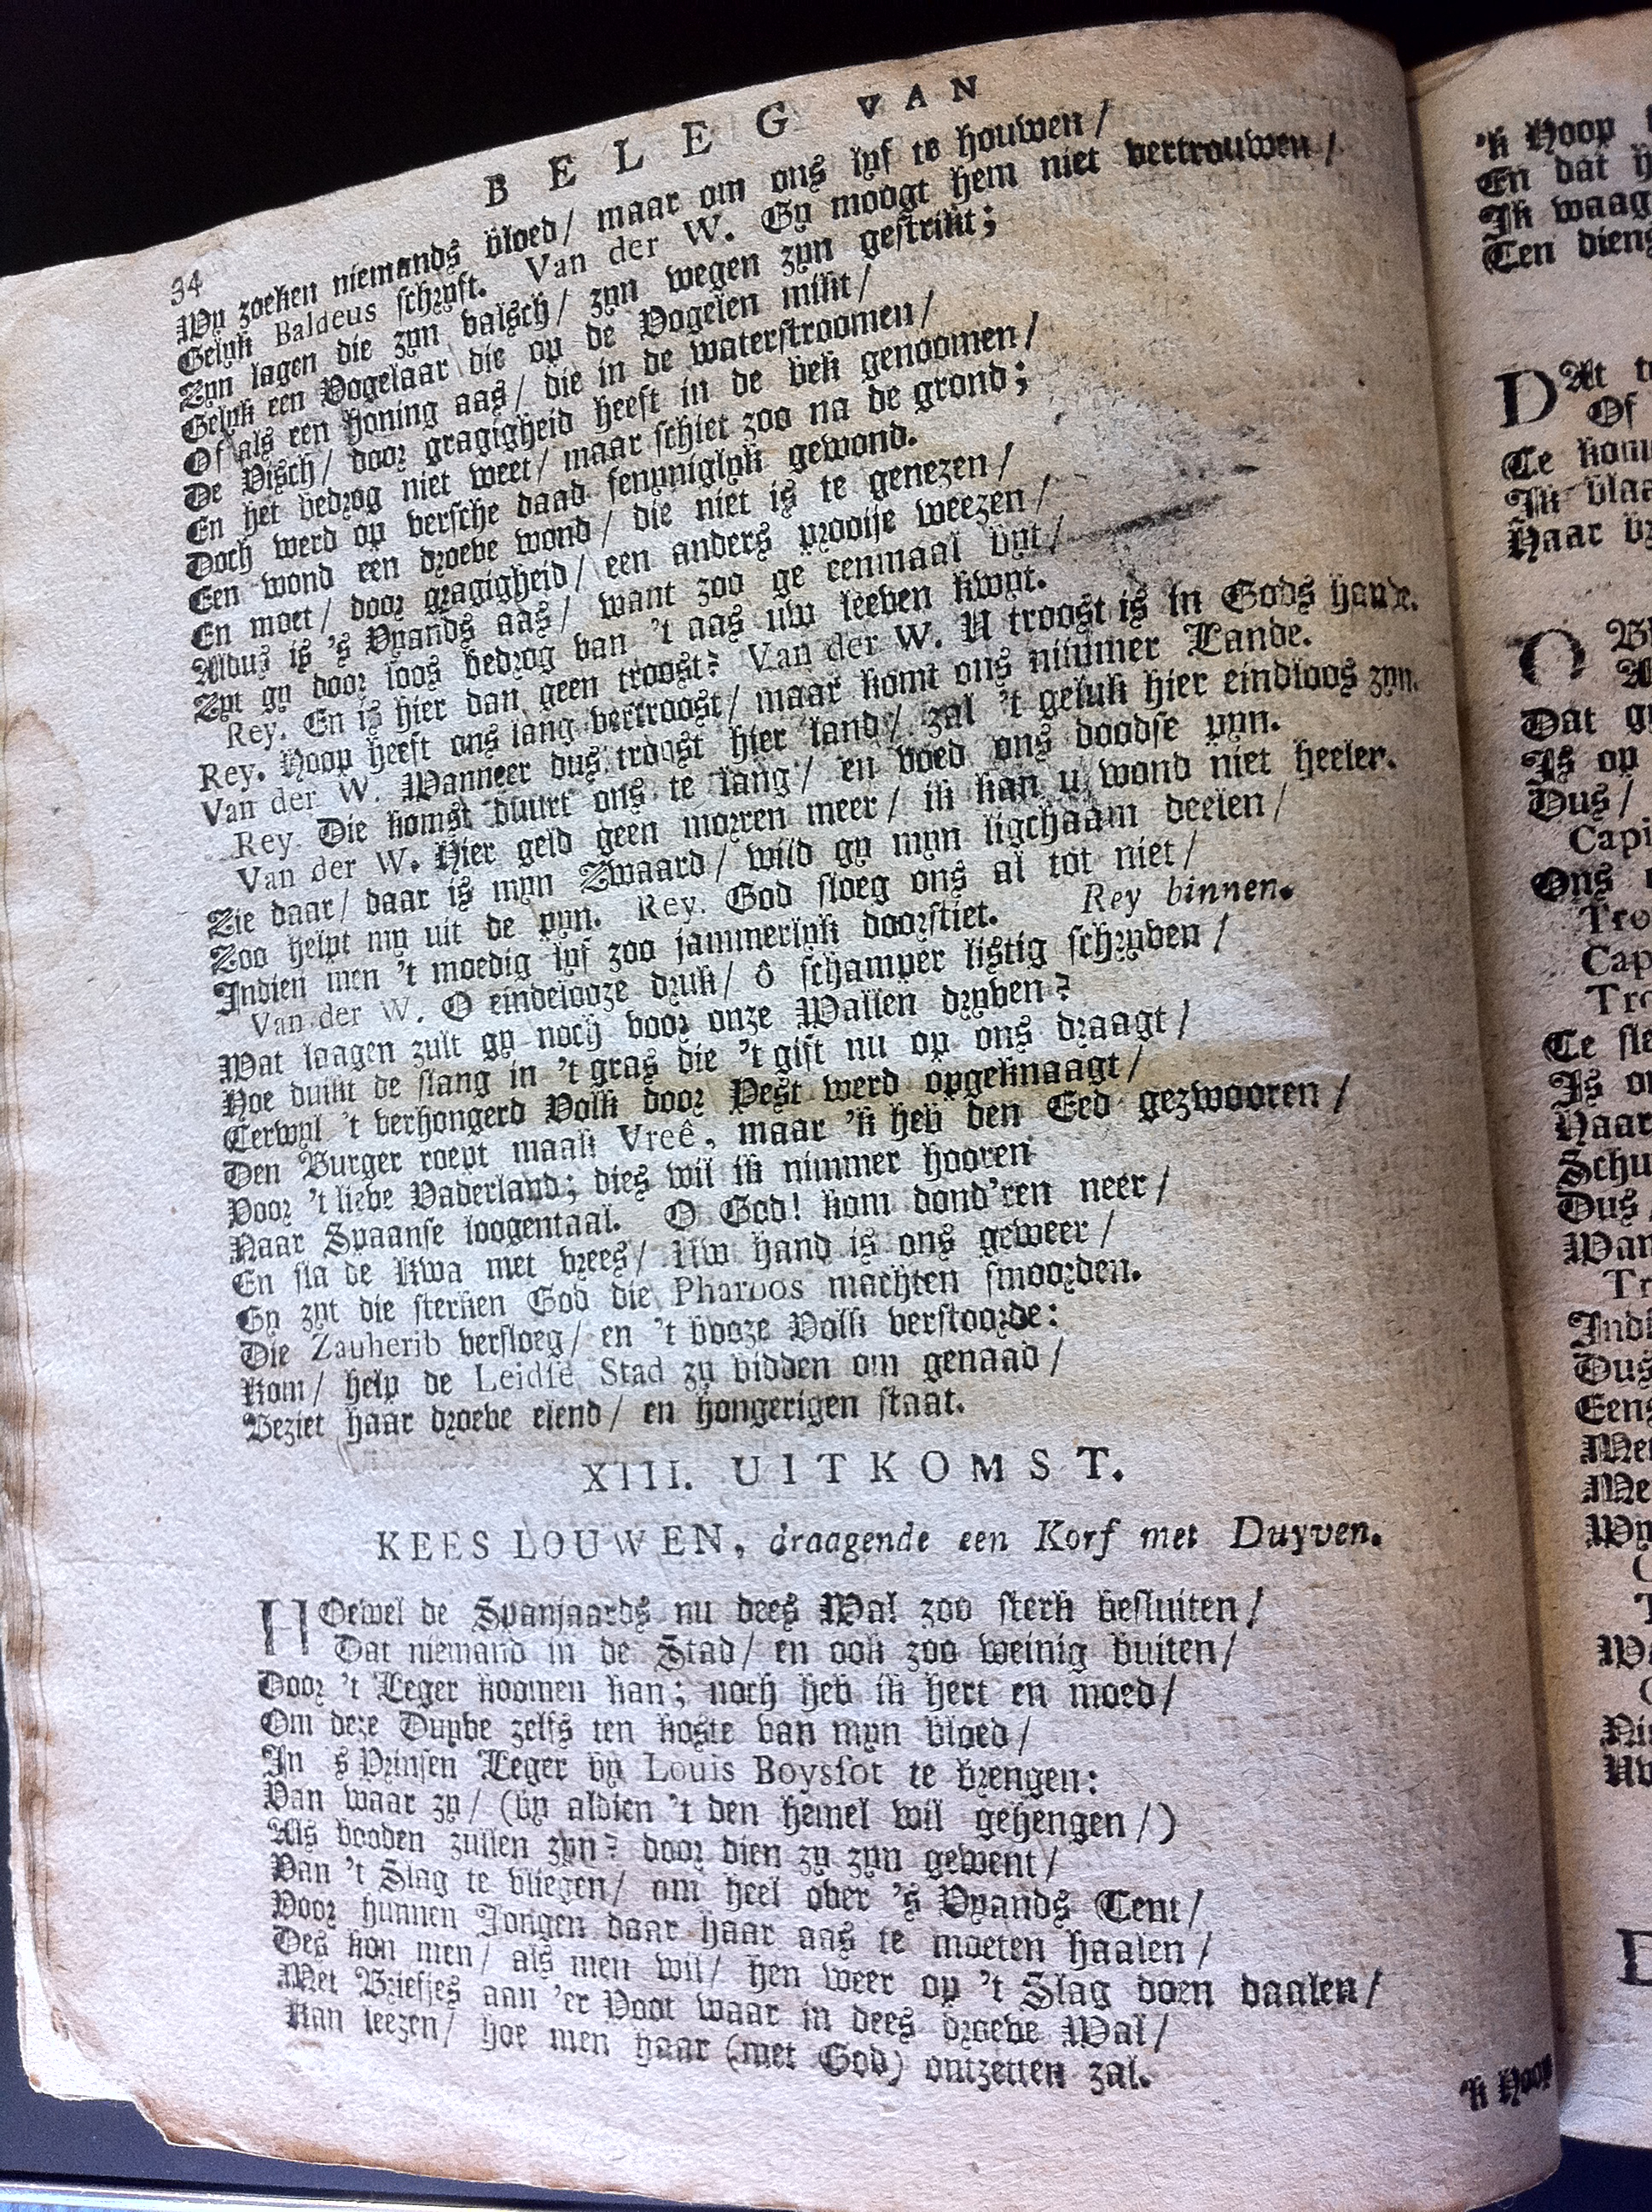 34 BELEG VAN
Wy zoeken niemands bloed/ maar om ons lyf te houwen/
Gelyk Baldeus schryft. Van der W. Gy moogt hem niet vertrouwen/
Zyn lagen die zyn valsch/ zyn wegen zyn gestrikt;
Gelyk een Vogelaar die op de Vogelen mikt/
Of als een honing aas/ die in de waterstroomen/
De Visch/ door gragigheid heeft in de bek genoomen/
En het bedrog niet weet/ maar schiet zoo na de grond;
Doch werd op versche daad fenyniglyk gewond.
Een wond een droeve wond/ die niet is te genezen/
En moet/ door gragigheid/ een anders prooije weezen/
Aldus is 's Vyands aas/ want zoo ge eenmaal byt/
Zyt gy door loos bedrog van 't aas uw leeven kwyt.
Rey. En is hier dan geen troost? Van der W. U troost is in Gods hande.
Rey. Hoop heeft ons lang vertroost/ maar komt ons nimmer Lande.
Van der W. Wanneer dus troost hier land/ zal 't geluk hier eindloos zyn.
Rey. Die komst duurt ons te lang/ en voed ons doodse pyn.
Van der W. Hier geld geen morren meer/ ik kan u wond niet heelen.
Zie daar/ daar is myn Zwaard/ wild gy myn ligchaam deelen/
Zoo helpt my uit de pyn. Rey. God sloeg ons al tot niet/
Indien men 't moedig lyf zoo jammerlyk doorstiet. Rey binnen.
Van der W. O eindelooze druk/ ô schamper listig schryven/
Wat laagen zult gy noch voor onze Wallen dryven?
Hoe duikt de slang in 't gras die 't gift nu op ons draagt/
Terwyl 't verhongerd Volk door Pest werd opgeknaagt/
Den Burger roept maak Vreê, maar 'k heb den Eed gezwooren/
Voor 't lieve Vaderland; dies wil ik nimmer hooren
Naar Spaanse loogentaal. O God! kom dond'ren neer/
En sla de Kwa met vrees/ Uw hand is ons geweer/
Gy zyt die sterken God die Pharoos machten smoorden.
Die Zauherib versloeg/ en 't booze Volk verstoorde:
Kom/ help de Leidse Stad zy bidden om genaad/
Beziet haar droeve elend/ en hongerigen staat.
XIII. UITKOMST.
KEES LOUWEN, draagende een Korf met Duyven.
HOewel de Spanjaards nu dees Wal zoo sterk besluiten/
Dat niemand in de Stad/ en ook zoo weinig buiten/
Door 't Leger koomen kan; noch heb ik hert en moed/
Om deze Duyve zelfs ten koste van myn bloed/
In 's Prinsen Leger by Louis Boyssot te brengen:
Van waar zy/ (by aldien 't den hemel wil gehengen/)
Als booden zullen zyn? door dien zy zyn gewent/
Van 't Slag te vliegen/ om heel over 's Vyands Tent/
Voor hunnen Jongen daar haar aas te moeten haalen/
Des kon men/ als men wil/ hen weer op 't Slag doen daalen/
Met Briefjes aan 'er Poot waar in dees droeve Wal/
Kan leezen/ hoe men haar (met God) ontzetten zal.
'k Hoop
'k Hoop
En dat
Ik waag
Ten diens
DAt
Of
Te kom
Ik
Haar
O
Dat
Is op
Dus/
Capi
Ons
Cap
Te
Is
Haar
Schu
Dus
Indi
Dus
Eens
Met
Me
Wy